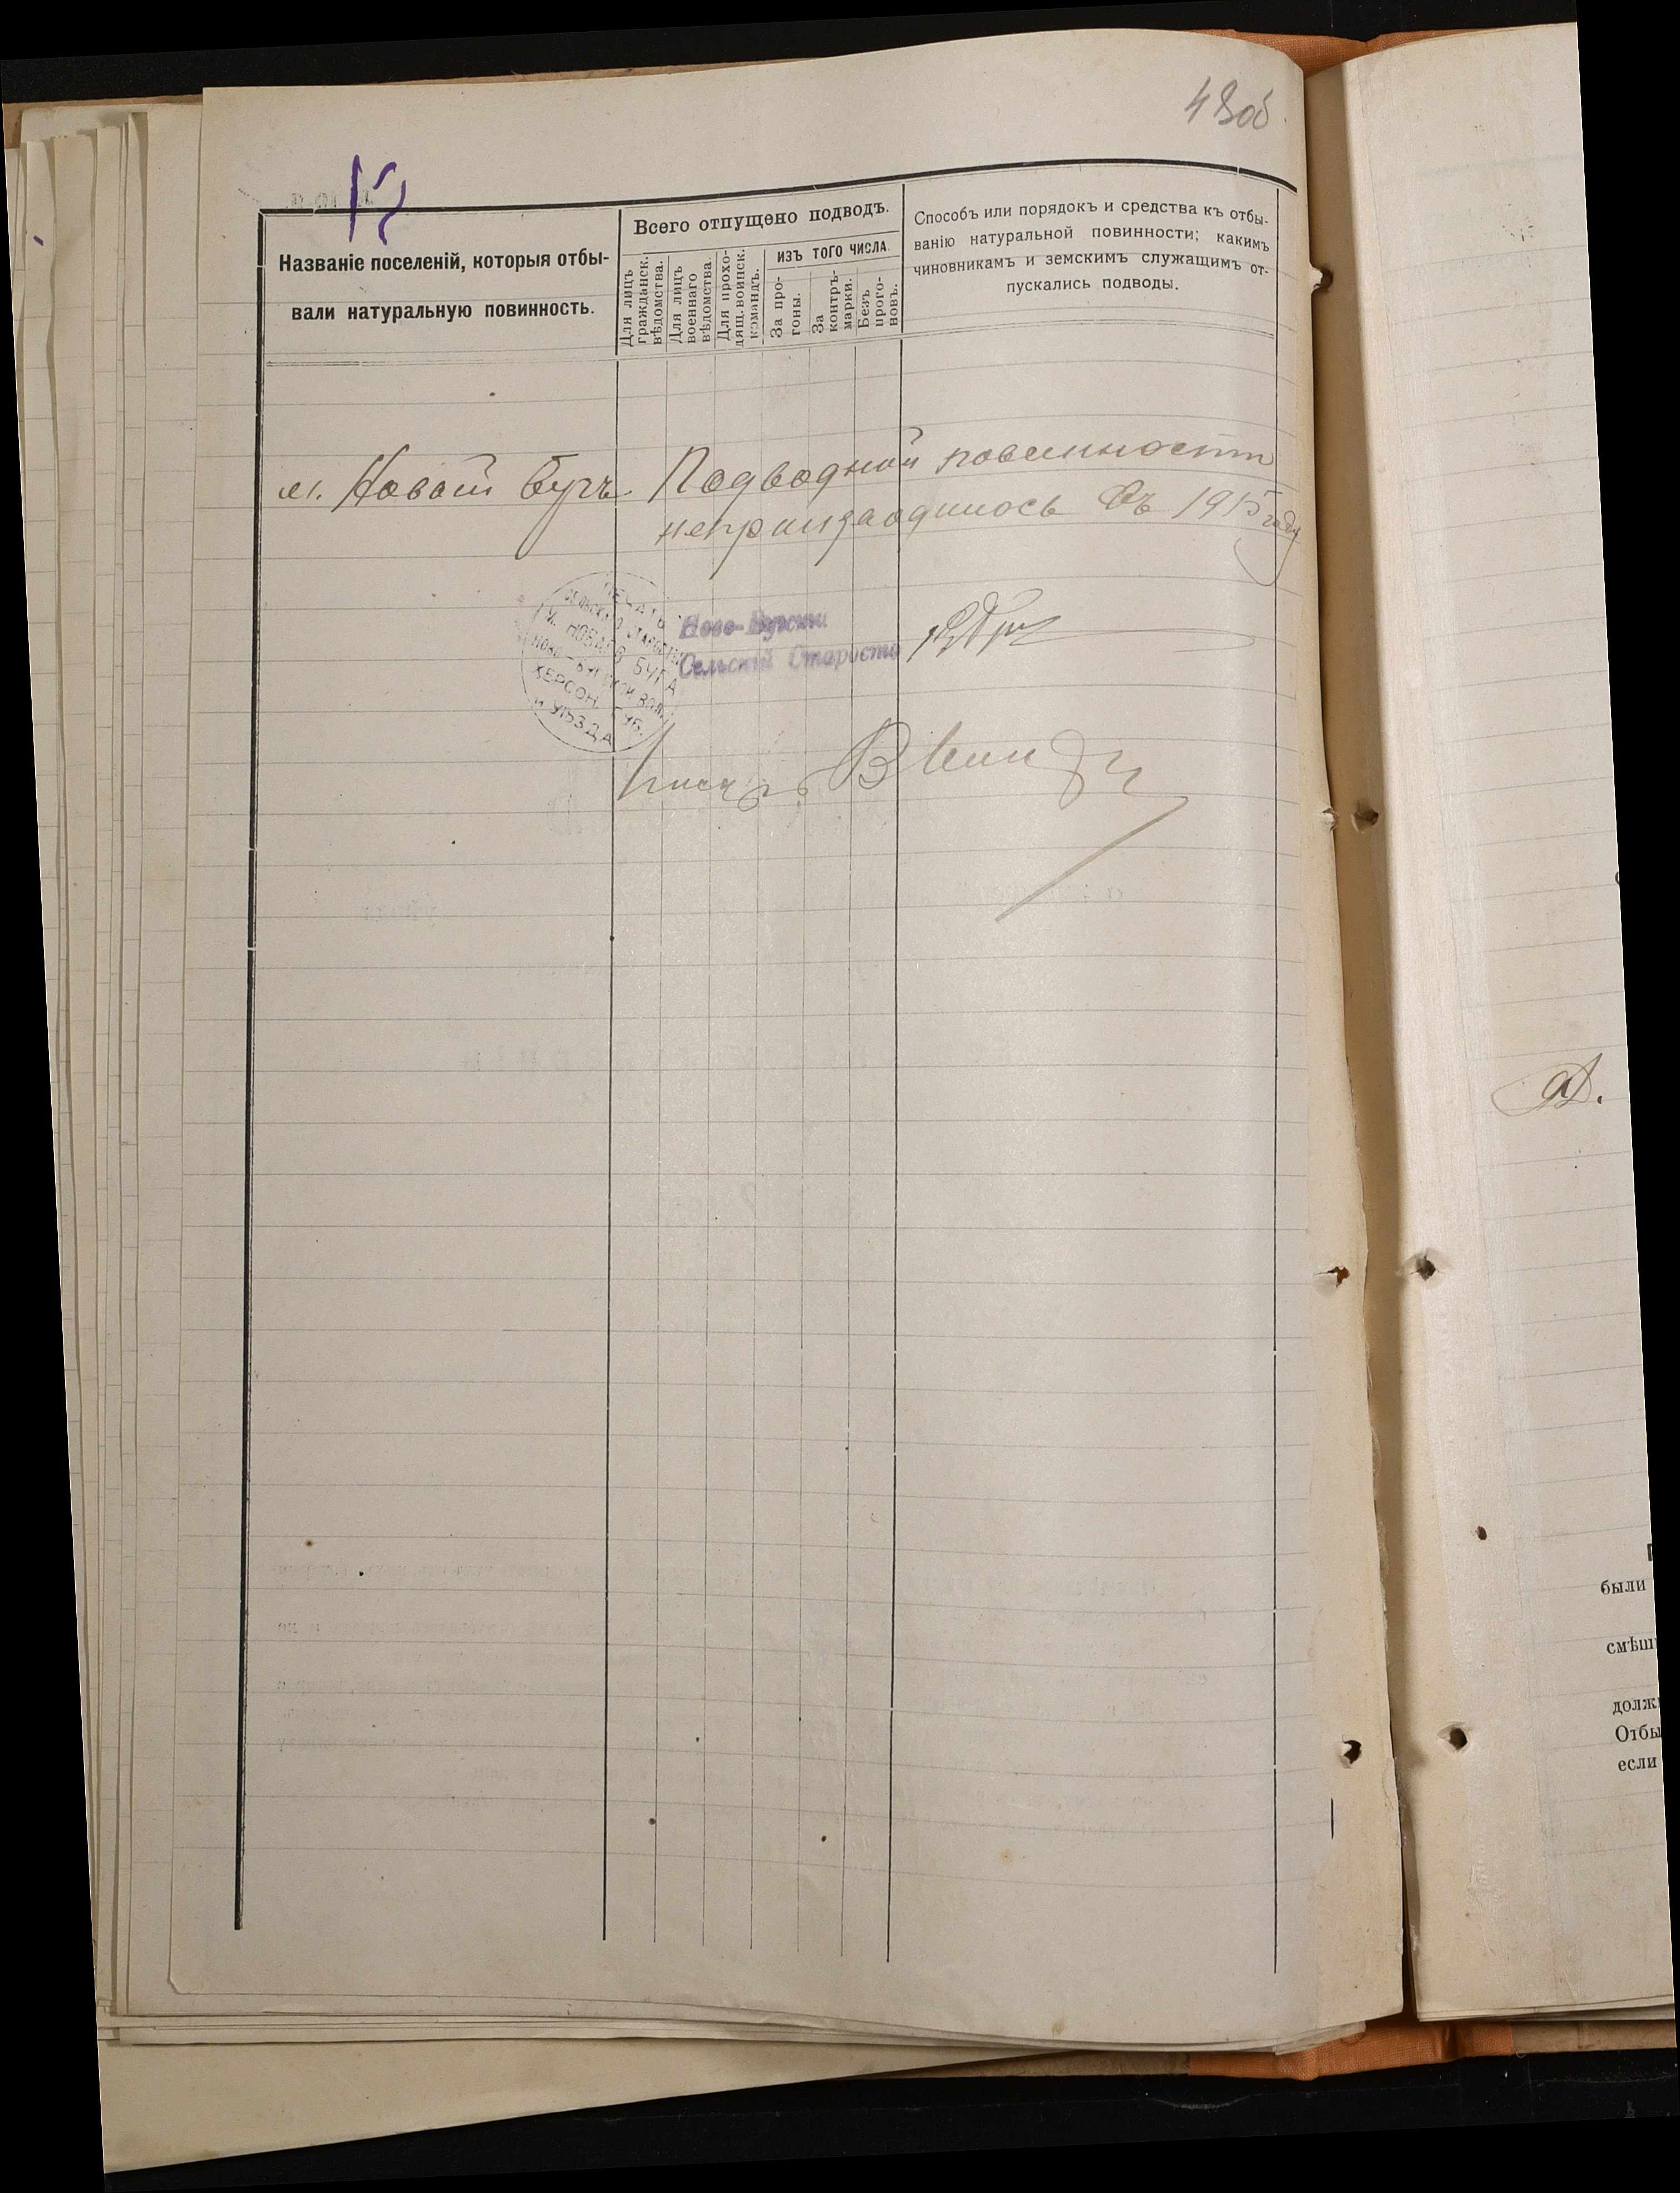 43об
Названіе поселеній, которыя отбы-
вали натуральную повинность.
Всего отпущено подводъ.
Для лицъ
гражданск.
вѣдомства.
Для лицъ
военнаго
вѣдомства.
Для прохо-
дящ. воинск.
командъ.
ИЗЪ ТОГО ЧИСЛА.
За про-
гоны.
За
контръ-
марки.
Безъ
прого-
новъ.
Способъ или порядокъ и средства къ отбы-
ванію натуральной повинности; какимъ
чиновникамъ и земскимъ служащимъ от-
пускались подводы.
м. Новый Бугъ
Подводной повинности
непроизводилось въ 1915 году
ПЕЧАТЬ
СЕЛЬСКАГО СТАРОСТЫ
М. НОВАГО БУГА
НОВО-БУГСКОЙ ВОЛ.
ХЕРСОН. ГУБ.
и УѢЗДА
Ново-Бугскій
Сельскій Староста
Писарь
были
смѣш
долж
Отбы
если